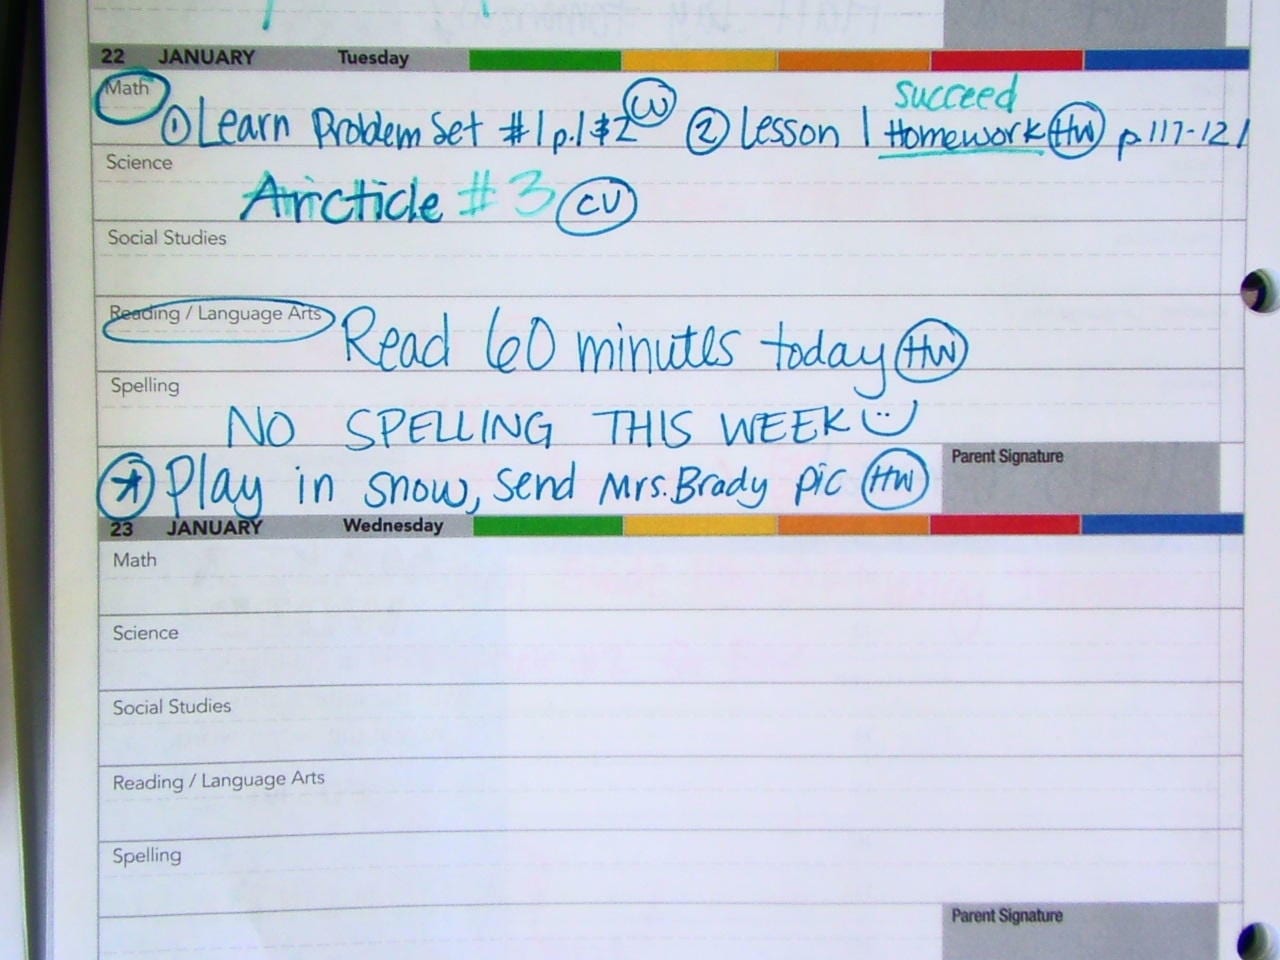 22 JANUARY Tuesday
Math
succeed
① Learn Problem Set #1 p.1 & 2 CW ② Lesson 1 Homework HW p.117-121
Science
Arcticle #3 CW
Social Studies
Reading / Language Arts
Read 60 minutes today HW
Spelling
NO SPELLING THIS WEEK
Play in snow, send Mrs. Brady pic HW
Parent Signature
23 JANUARY Wednesday
Math
Science
Social Studies
Reading / Language Arts
Spelling
Parent Signature